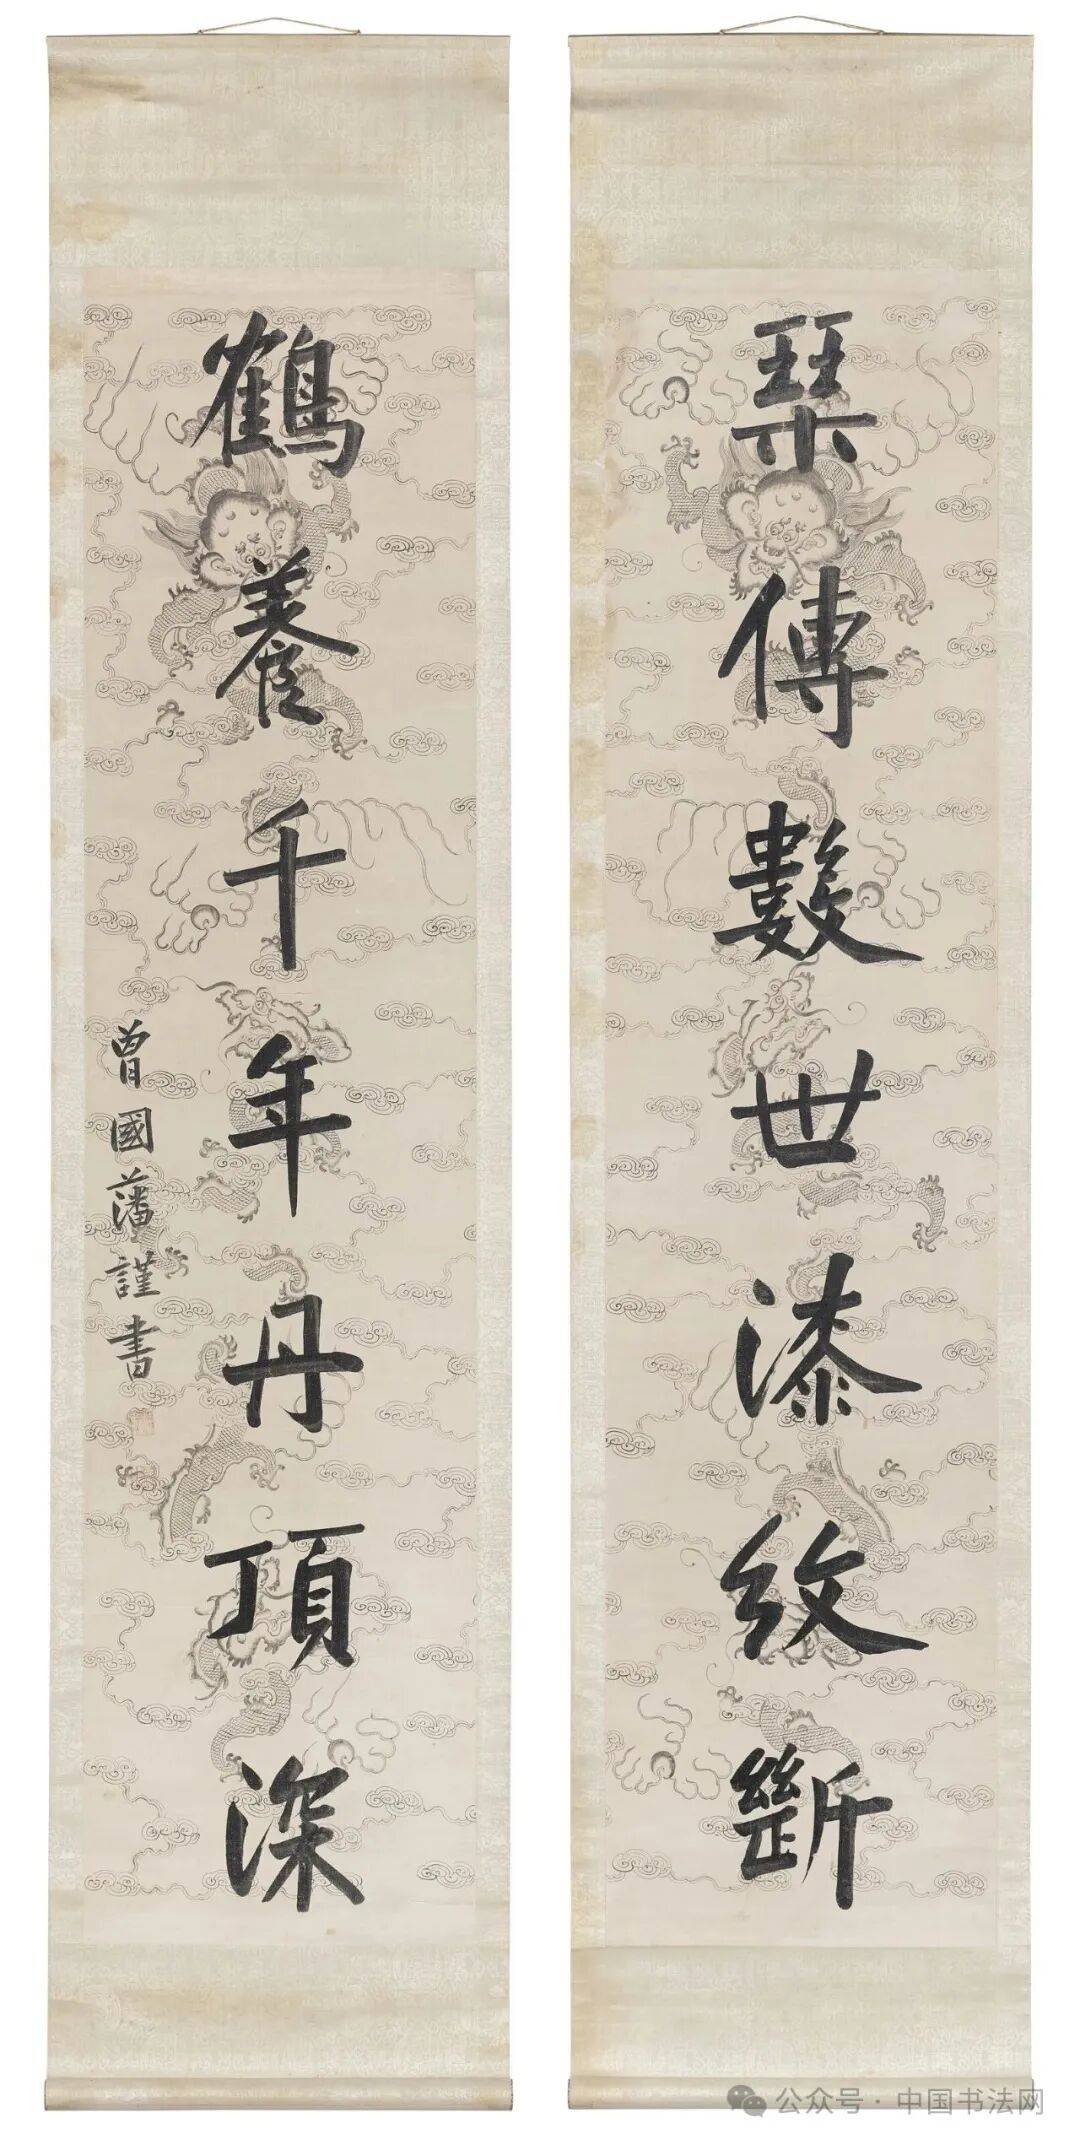 琹傳數世漆紋斷
鶴養千年丹頂深
曾國藩謹書
公众号·中国书法网